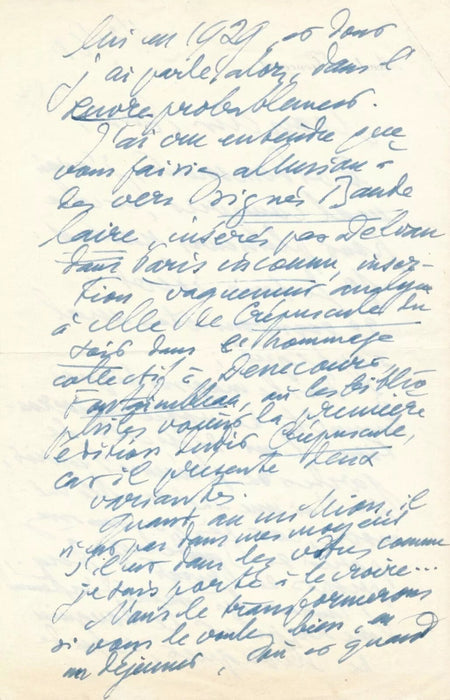 lui en 1929, et dont
j'ai parlé alors, dans l'
Œuvre probablement.
J'ai cru entendre que
vous faisiez allusion à
des vers signés Baude
laire, insérés par Delvau
dans Paris inconnu, inser-
tion vaguement analogue
à celle de Crépuscule du
soir dans le hommage
collectif à Denecourt,
Fontainebleau, où les biblio
philes voient la première
édition dudit Crépuscule,
car il présente deux
variantes.
Quant au million, il
n'est pas dans mes moyens
s'il est dans les vôtres comme
je suis porté à le croire...
Nous le transformerons
si vous le voulez bien, en
un déjeuner, où et quand